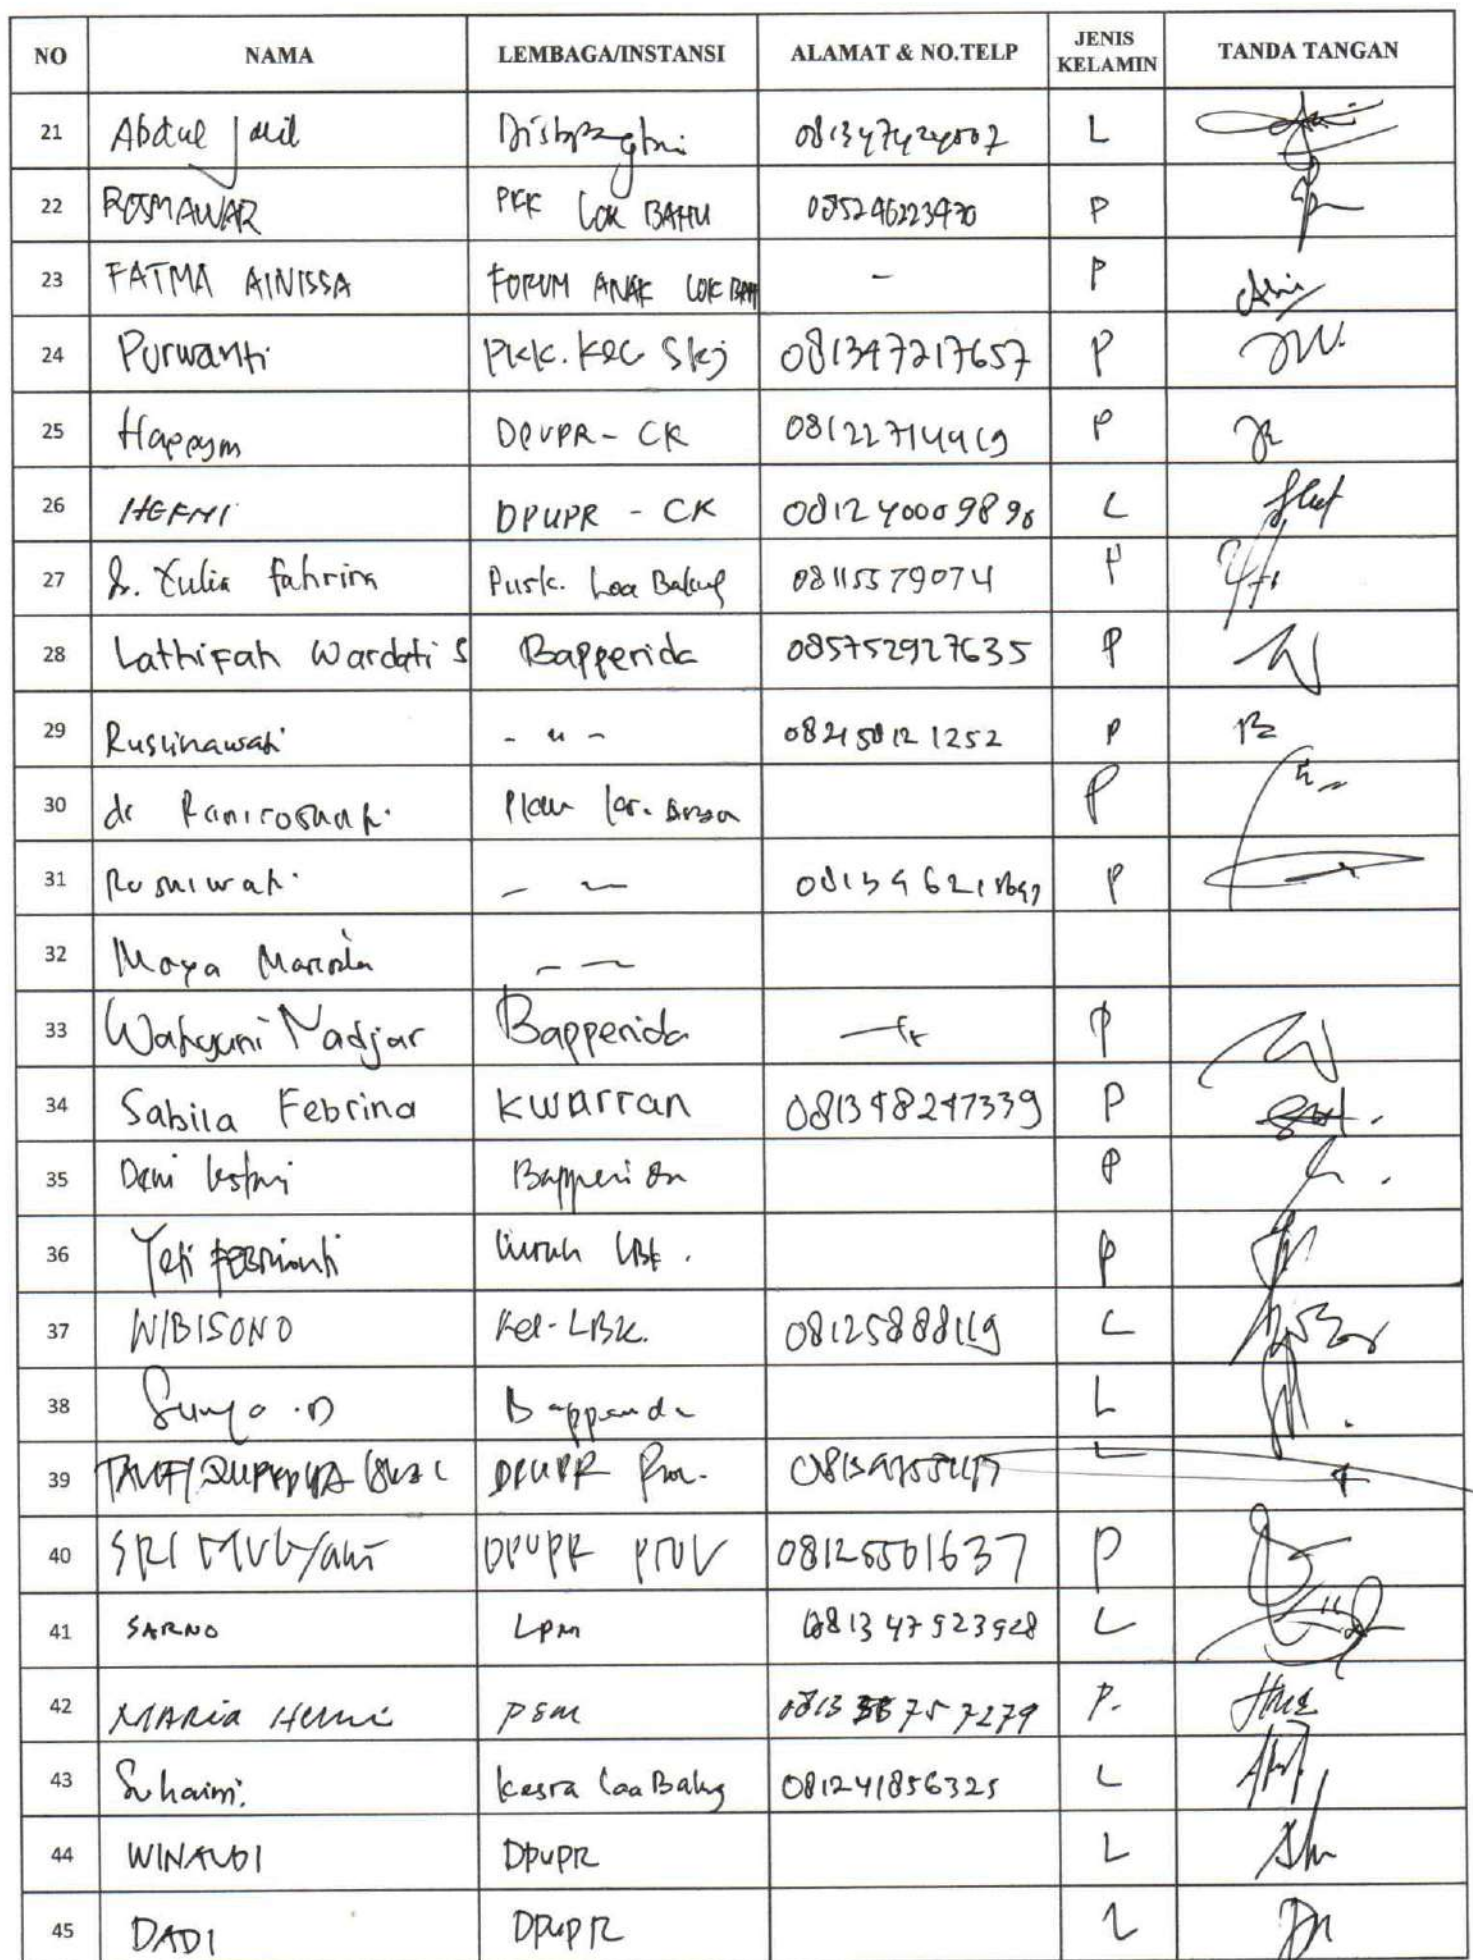 NO NAMA LEMBAGA/INSTANSI ALAMAT & NO.TELP JENIS KELAMIN TANDA TANGAN
21 Abdul Jalil L
22 ROSMAWAR PKK LOK BAHU 085246223470 P
23 FATMA AINISSA FORUM ANAK LOK BAH - P
24 Purwanti PKK. Kec Skj 081347217657 P
25 DPUPR - CK 08122714419 P
26 HEFNI DPUPR - CK 081240009890 L
27 Yulia fahrina Pusk. Loa Bakung 08115579074 P
28 Lathifah Wardati S Bapperida 085752927635 P
29 Ruslinawati - " - 082150121252 P
30 dr P
31 Rosniwati - - P
32 Maya - -
33 Wahyuni Nadjar Bapperida P
34 Sabila Febrina Kwarran 081348247339 P
35 Dewi Lestari Bapperida P
36 Yeti FEBRianti Lurah LBK. P
37 WIBISONO Kel-LBK. 08125888119 L
38 Surya .D Bapperida L
39 DPUPR Prov. L
40 SRI MULYani DPUPR PROV 08125501637 P
41 SARNO LPM 081347923928 L
42 MARia Herni PSM P.
43 Suhaimi. Kesra Loa Bakung 081241856325 L
44 WINARDI DPUPR L
45 DADI DPUPR L